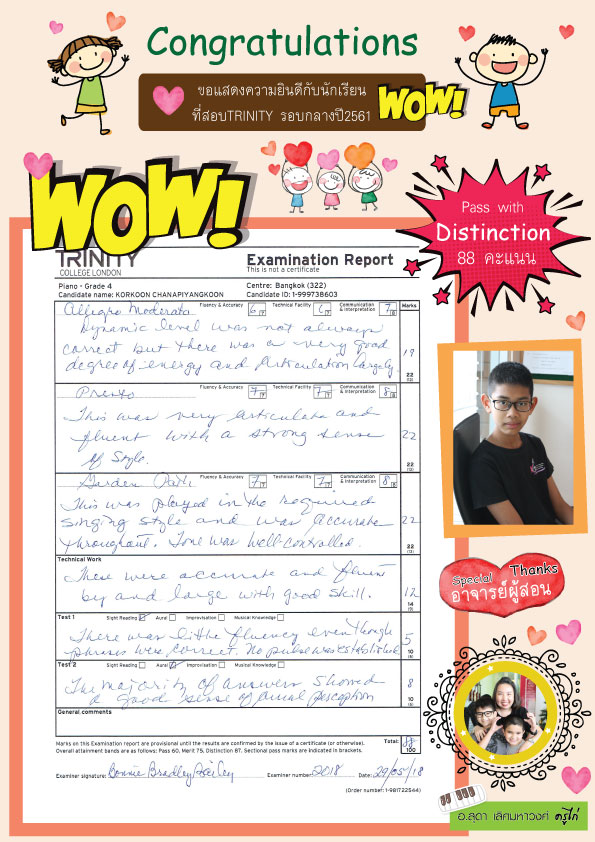 Congratulations
ขอแสดงความยินดีกับนักเรียน
ที่สอบTRINITY รอบกลางปี2561
WOW!
WOW!
Pass with
Distinction
88 คะแนน
TRINITY
COLLEGE LONDON
Examination Report
This is not a certificate
Piano - Grade 4
Centre: Bangkok (322)
Candidate name: KORKOON CHANAPIYANGKOON
Candidate ID: 1-999738603
Allegro Moderato Fluency & Accuracy 6 Technical Facility 6 Communication & Interpretation 7 Marks
Dynamic level was not always
correct but there was a very good
degree of energy and articulation largely. 19
22
Presto Fluency & Accuracy 7 Technical Facility 7 Communication & Interpretation 8
This was very articulate and
fluent with a strong sense 22
of style.
22
Garden Path Fluency & Accuracy 7 Technical Facility 7 Communication & Interpretation 8
This was played in the required
singing style and was accurate 22
throughout. Tone was well-controlled.
22
Technical Work
These were accurate and fluent
by and large with good skill. 12
14
Test 1 Sight Reading Aural Improvisation Musical Knowledge
There was little fluency even though 5
phrases were correct. No pulse was established
10
Test 2 Sight Reading Aural Improvisation Musical Knowledge
The majority of answers showed 8
a good sense of aural perception
10
General comments
Marks on this Examination report are provisional until the results are confirmed by the issue of a certificate (or otherwise).
Overall attainment bands are as follows: Pass 60, Merit 75, Distinction 87. Sectional pass marks are indicated in brackets.
Total: 88
100
Examiner signature: Bonnie Bradley Examiner number: 2018 Date: 29/05/18
(Order number: 1-981722544)
Special Thanks
อาจารย์ผู้สอน
อ.สุดา เลิศมหาวงศ์ ครูไก่